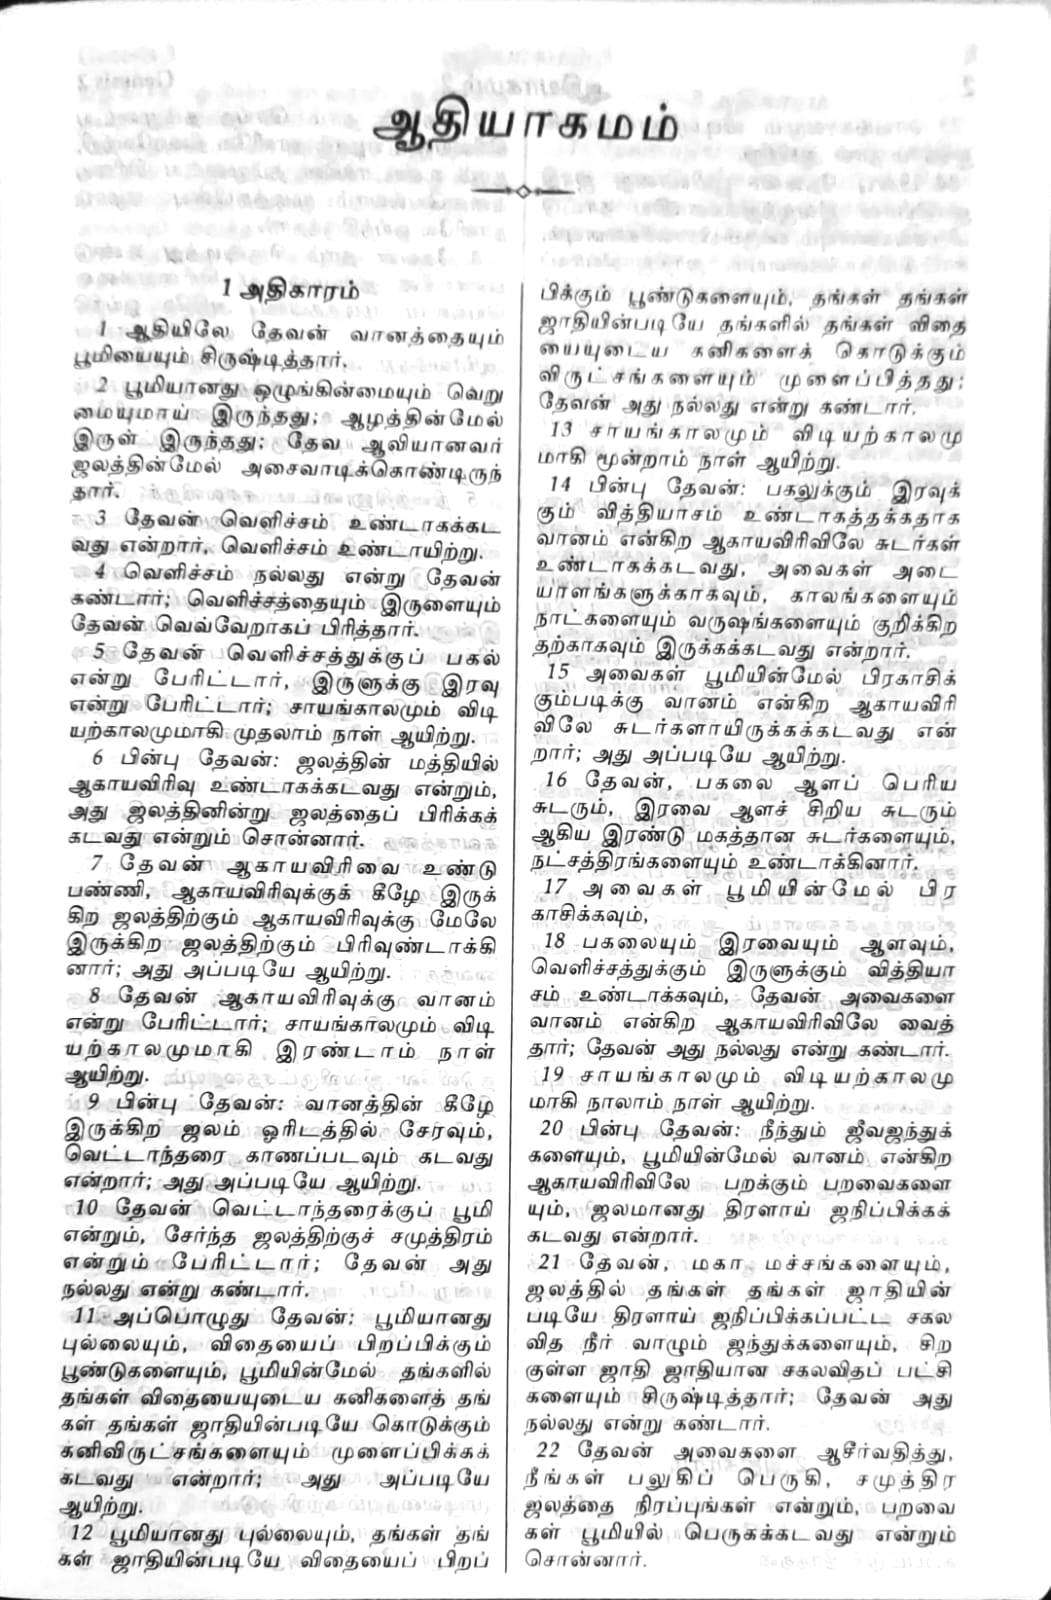 ஆதியாகமம்
1 அதிகாரம்
1 ஆதியிலே தேவன் வானத்தையும்
பூமியையும் சிருஷ்டித்தார்.
2 பூமியானது ஒழுங்கின்மையும் வெறு
மையுமாய் இருந்தது; ஆழத்தின்மேல்
இருள் இருந்தது; தேவ ஆவியானவர்
ஜலத்தின்மேல் அசைவாடிக்கொண்டிருந்
தார்.
3 தேவன் வெளிச்சம் உண்டாகக்கட
வது என்றார், வெளிச்சம் உண்டாயிற்று.
4 வெளிச்சம் நல்லது என்று தேவன்
கண்டார்; வெளிச்சத்தையும் இருளையும்
தேவன் வெவ்வேறாகப் பிரித்தார்.
5 தேவன் வெளிச்சத்துக்குப் பகல்
என்று பேரிட்டார், இருளுக்கு இரவு
என்று பேரிட்டார்; சாயங்காலமும் விடி
யற்காலமுமாகி முதலாம் நாள் ஆயிற்று.
6 பின்பு தேவன்: ஜலத்தின் மத்தியில்
ஆகாயவிரிவு உண்டாகக்கடவது என்றும்,
அது ஜலத்தினின்று ஜலத்தைப் பிரிக்கக்
கடவது என்றும் சொன்னார்.
7 தேவன் ஆகாயவிரிவை உண்டு
பண்ணி, ஆகாயவிரிவுக்குக் கீழே இருக்
கிற ஜலத்திற்கும் ஆகாயவிரிவுக்கு மேலே
இருக்கிற ஜலத்திற்கும் பிரிவுண்டாக்கி
னார்; அது அப்படியே ஆயிற்று.
8 தேவன் ஆகாயவிரிவுக்கு வானம்
என்று பேரிட்டார்; சாயங்காலமும் விடி
யற்காலமுமாகி இரண்டாம் நாள்
ஆயிற்று.
9 பின்பு தேவன்: வானத்தின் கீழே
இருக்கிற ஜலம் ஓரிடத்தில் சேரவும்,
வெட்டாந்தரை காணப்படவும் கடவது
என்றார்; அது அப்படியே ஆயிற்று.
10 தேவன் வெட்டாந்தரைக்குப் பூமி
என்றும், சேர்ந்த ஜலத்திற்குச் சமுத்திரம்
என்றும் பேரிட்டார்; தேவன் அது
நல்லது என்று கண்டார்.
11 அப்பொழுது தேவன்: பூமியானது
புல்லையும், விதையைப் பிறப்பிக்கும்
பூண்டுகளையும், பூமியின்மேல் தங்களில்
தங்கள் விதையையுடைய கனிகளைத் தங்
கள் தங்கள் ஜாதியின்படியே கொடுக்கும்
கனிவிருட்சங்களையும் முளைப்பிக்கக்
கடவது என்றார்; அது அப்படியே
ஆயிற்று.
12 பூமியானது புல்லையும், தங்கள் தங்
கள் ஜாதியின்படியே விதையைப் பிறப்
பிக்கும் பூண்டுகளையும், தங்கள் தங்கள்
ஜாதியின்படியே தங்களில் தங்கள் விதை
யையுடைய கனிகளைக் கொடுக்கும்
விருட்சங்களையும் முளைப்பித்தது;
தேவன் அது நல்லது என்று கண்டார்.
13 சாயங்காலமும் விடியற்காலமு
மாகி மூன்றாம் நாள் ஆயிற்று.
14 பின்பு தேவன்: பகலுக்கும் இரவுக்
கும் வித்தியாசம் உண்டாகத்தக்கதாக
வானம் என்கிற ஆகாயவிரிவிலே சுடர்கள்
உண்டாகக்கடவது, அவைகள் அடை
யாளங்களுக்காகவும், காலங்களையும்
நாட்களையும் வருஷங்களையும் குறிக்கிற
தற்காகவும் இருக்கக்கடவது என்றார்.
15 அவைகள் பூமியின்மேல் பிரகாசிக்
கும்படிக்கு வானம் என்கிற ஆகாயவிரி
விலே சுடர்களாயிருக்கக்கடவது என்
றார்; அது அப்படியே ஆயிற்று.
16 தேவன், பகலை ஆளப் பெரிய
சுடரும், இரவை ஆளச் சிறிய சுடரும்
ஆகிய இரண்டு மகத்தான சுடர்களையும்,
நட்சத்திரங்களையும் உண்டாக்கினார்.
17 அவைகள் பூமியின்மேல் பிர
காசிக்கவும்,
18 பகலையும் இரவையும் ஆளவும்,
வெளிச்சத்துக்கும் இருளுக்கும் வித்தியா
சம் உண்டாக்கவும், தேவன் அவைகளை
வானம் என்கிற ஆகாயவிரிவிலே வைத்
தார்; தேவன் அது நல்லது என்று கண்டார்.
19 சாயங்காலமும் விடியற்காலமு
மாகி நாலாம் நாள் ஆயிற்று.
20 பின்பு தேவன்: நீந்தும் ஜீவஜந்துக்
களையும், பூமியின்மேல் வானம் என்கிற
ஆகாயவிரிவிலே பறக்கும் பறவைகளை
யும், ஜலமானது திரளாய் ஜநிப்பிக்கக்
கடவது என்றார்.
21 தேவன், மகா மச்சங்களையும்,
ஜலத்தில் தங்கள் தங்கள் ஜாதியின்
படியே திரளாய் ஜநிப்பிக்கப்பட்ட சகல
வித நீர் வாழும் ஜந்துக்களையும், சிற
குள்ள ஜாதி ஜாதியான சகலவிதப் பட்சி
களையும் சிருஷ்டித்தார்; தேவன் அது
நல்லது என்று கண்டார்.
22 தேவன் அவைகளை ஆசீர்வதித்து,
நீங்கள் பலுகிப் பெருகி, சமுத்திர
ஜலத்தை நிரப்புங்கள் என்றும், பறவை
கள் பூமியில் பெருகக்கடவது என்றும்
சொன்னார்.